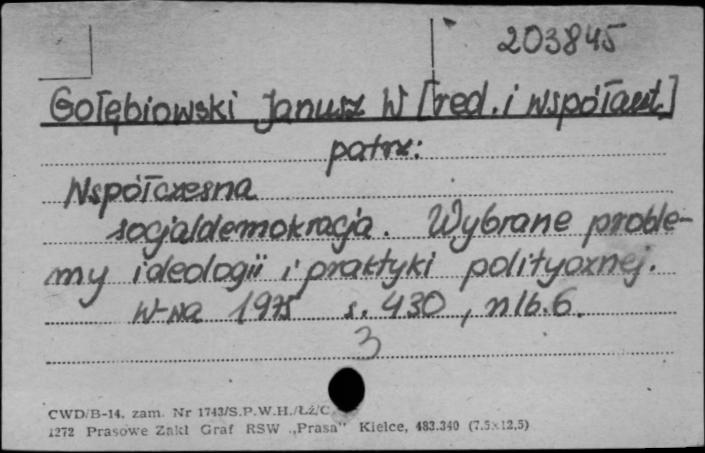 203845
Gołębiowski Janusz W [red. i współaut.]
patrz:
Współczesna
socjaldemokracja. Wybrane proble-
my ideologii i praktyki politycznej.
W-wa 1975 s. 430, nlb. 6.
3
CWD/B-14. zam. Nr 1743/S.P.W.H./Łź/C
1272 Prasowe Zakł Graf RSW „Prasa" Kielce, 483.340 (7.5×12.5)